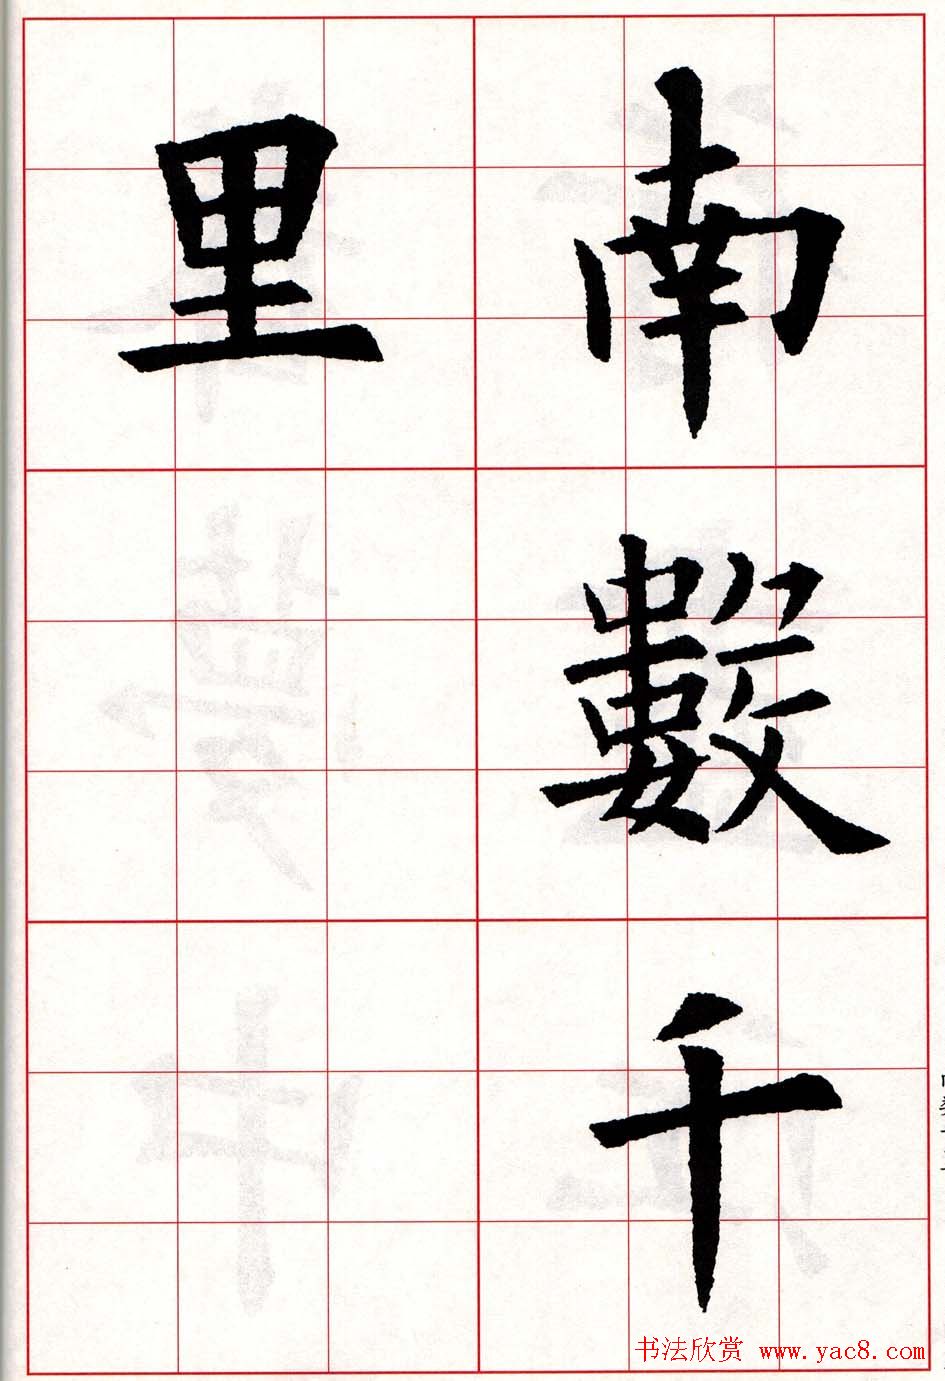 南數千
里
书法欣赏 www.yac8.com